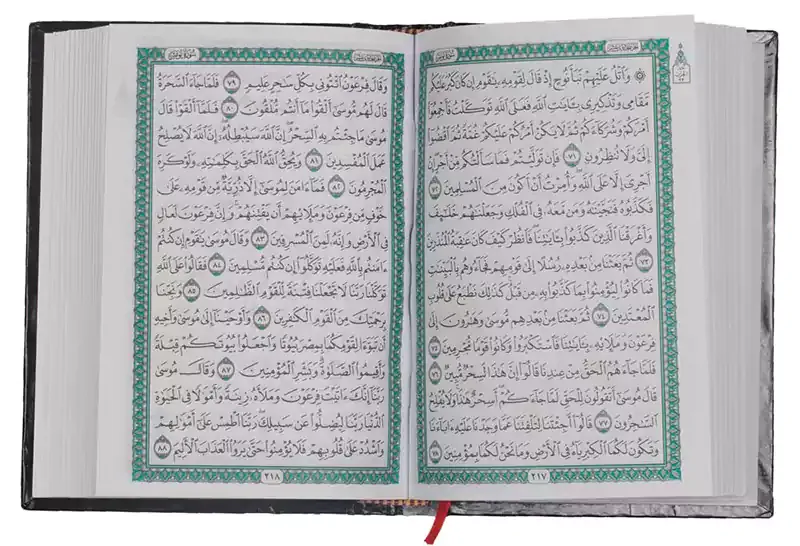 الجزء الحادي عشر سورة يونس
۞ وَٱتْلُ عَلَيْهِمْ نَبَأَ نُوحٍ إِذْ قَالَ لِقَوْمِهِۦ يَٰقَوْمِ إِن كَانَ كَبُرَ عَلَيْكُم
مَّقَامِى وَتَذْكِيرِى بِـَٔايَٰتِ ٱللَّهِ فَعَلَى ٱللَّهِ تَوَكَّلْتُ فَأَجْمِعُوٓا۟
أَمْرَكُمْ وَشُرَكَآءَكُمْ ثُمَّ لَا يَكُنْ أَمْرُكُمْ عَلَيْكُمْ غُمَّةً ثُمَّ ٱقْضُوٓا۟
إِلَىَّ وَلَا تُنظِرُونِ ٧١ فَإِن تَوَلَّيْتُمْ فَمَا سَأَلْتُكُم مِّنْ أَجْرٍ إِنْ
أَجْرِىَ إِلَّا عَلَى ٱللَّهِ وَأُمِرْتُ أَنْ أَكُونَ مِنَ ٱلْمُسْلِمِينَ ٧٢
فَكَذَّبُوهُ فَنَجَّيْنَٰهُ وَمَن مَّعَهُۥ فِى ٱلْفُلْكِ وَجَعَلْنَٰهُمْ خَلَٰٓئِفَ
وَأَغْرَقْنَا ٱلَّذِينَ كَذَّبُوا۟ بِـَٔايَٰتِنَا فَٱنظُرْ كَيْفَ كَانَ عَٰقِبَةُ ٱلْمُنذَرِينَ
٧٣ ثُمَّ بَعَثْنَا مِنۢ بَعْدِهِۦ رُسُلًا إِلَىٰ قَوْمِهِمْ فَجَآءُوهُم بِٱلْبَيِّنَٰتِ
فَمَا كَانُوا۟ لِيُؤْمِنُوا۟ بِمَا كَذَّبُوا۟ بِهِۦ مِن قَبْلُ كَذَٰلِكَ نَطْبَعُ عَلَىٰ قُلُوبِ
ٱلْمُعْتَدِينَ ٧٤ ثُمَّ بَعَثْنَا مِنۢ بَعْدِهِم مُّوسَىٰ وَهَٰرُونَ إِلَىٰ
فِرْعَوْنَ وَمَلَإِي۟هِۦ بِـَٔايَٰتِنَا فَٱسْتَكْبَرُوا۟ وَكَانُوا۟ قَوْمًا مُّجْرِمِينَ ٧٥
فَلَمَّا جَآءَهُمُ ٱلْحَقُّ مِنْ عِندِنَا قَالُوٓا۟ إِنَّ هَٰذَا لَسِحْرٌ مُّبِينٌ ٧٦
قَالَ مُوسَىٰٓ أَتَقُولُونَ لِلْحَقِّ لَمَّا جَآءَكُمْ أَسِحْرٌ هَٰذَا وَلَا يُفْلِحُ
ٱلسَّٰحِرُونَ ٧٧ قَالُوٓا۟ أَجِئْتَنَا لِتَلْفِتَنَا عَمَّا وَجَدْنَا عَلَيْهِ ءَابَآءَنَا
وَتَكُونَ لَكُمَا ٱلْكِبْرِيَآءُ فِى ٱلْأَرْضِ وَمَا نَحْنُ لَكُمَا بِمُؤْمِنِينَ ٧٨
٢١٧
سورة يونس الجزء الحادي عشر
وَقَالَ فِرْعَوْنُ ٱئْتُونِى بِكُلِّ سَٰحِرٍ عَلِيمٍ ٧٩ فَلَمَّا جَآءَ ٱلسَّحَرَةُ
قَالَ لَهُم مُّوسَىٰٓ أَلْقُوا۟ مَآ أَنتُم مُّلْقُونَ ٨٠ فَلَمَّآ أَلْقَوْا۟ قَالَ
مُوسَىٰ مَا جِئْتُم بِهِ ٱلسِّحْرُ إِنَّ ٱللَّهَ سَيُبْطِلُهُۥٓ إِنَّ ٱللَّهَ لَا يُصْلِحُ
عَمَلَ ٱلْمُفْسِدِينَ ٨١ وَيُحِقُّ ٱللَّهُ ٱلْحَقَّ بِكَلِمَٰتِهِۦ وَلَوْ كَرِهَ
ٱلْمُجْرِمُونَ ٨٢ فَمَآ ءَامَنَ لِمُوسَىٰٓ إِلَّا ذُرِّيَّةٌ مِّن قَوْمِهِۦ عَلَىٰ
خَوْفٍ مِّن فِرْعَوْنَ وَمَلَإِي۟هِمْ أَن يَفْتِنَهُمْ وَإِنَّ فِرْعَوْنَ لَعَالٍ
فِى ٱلْأَرْضِ وَإِنَّهُۥ لَمِنَ ٱلْمُسْرِفِينَ ٨٣ وَقَالَ مُوسَىٰ يَٰقَوْمِ إِن كُنتُمْ
ءَامَنتُم بِٱللَّهِ فَعَلَيْهِ تَوَكَّلُوٓا۟ إِن كُنتُم مُّسْلِمِينَ ٨٤ فَقَالُوا۟ عَلَى ٱللَّهِ
تَوَكَّلْنَا رَبَّنَا لَا تَجْعَلْنَا فِتْنَةً لِّلْقَوْمِ ٱلظَّٰلِمِينَ ٨٥ وَنَجِّنَا
بِرَحْمَتِكَ مِنَ ٱلْقَوْمِ ٱلْكَٰفِرِينَ ٨٦ وَأَوْحَيْنَآ إِلَىٰ مُوسَىٰ وَأَخِيهِ
أَن تَبَوَّءَا لِقَوْمِكُمَا بِمِصْرَ بُيُوتًا وَٱجْعَلُوا۟ بُيُوتَكُمْ قِبْلَةً
وَأَقِيمُوا۟ ٱلصَّلَوٰةَ وَبَشِّرِ ٱلْمُؤْمِنِينَ ٨٧ وَقَالَ مُوسَىٰ
رَبَّنَآ إِنَّكَ ءَاتَيْتَ فِرْعَوْنَ وَمَلَأَهُۥ زِينَةً وَأَمْوَٰلًا فِى ٱلْحَيَوٰةِ
ٱلدُّنْيَا رَبَّنَا لِيُضِلُّوا۟ عَن سَبِيلِكَ رَبَّنَا ٱطْمِسْ عَلَىٰٓ أَمْوَٰلِهِمْ
وَٱشْدُدْ عَلَىٰ قُلُوبِهِمْ فَلَا يُؤْمِنُوا۟ حَتَّىٰ يَرَوُا۟ ٱلْعَذَابَ ٱلْأَلِيمَ ٨٨
٢١٨